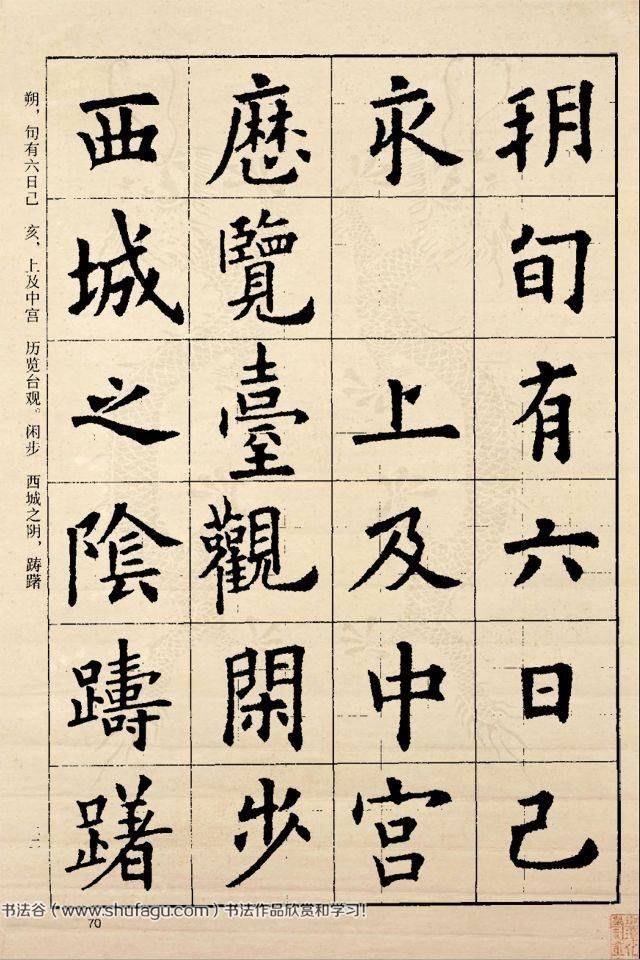 朔旬有六日己
亥上及中宮
歷覽臺觀閑步
西城之陰躊躇
朔，旬有六日己　亥、上及中宫　历览台观。闲步　西城之阴，踌躇
二
书法谷（www.shufagu.com）书法作品欣赏和学习！
70